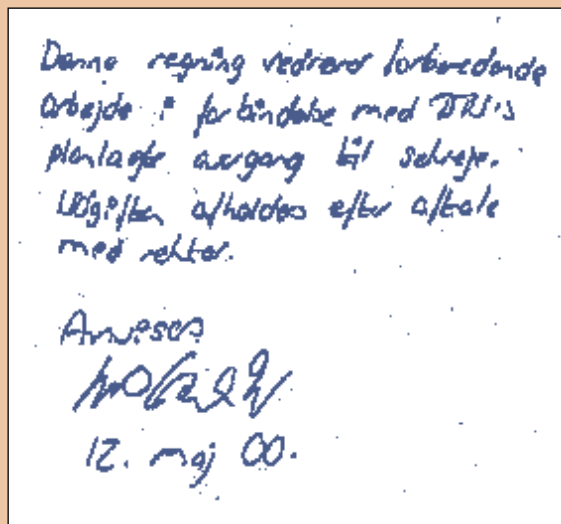 Denne regning vedrører forberedende
arbejde i forbindelse med DTU's
planlagte overgang til selveje.
Udgiften afholdes efter aftale
med rektor.
Anvises
12. maj 00.